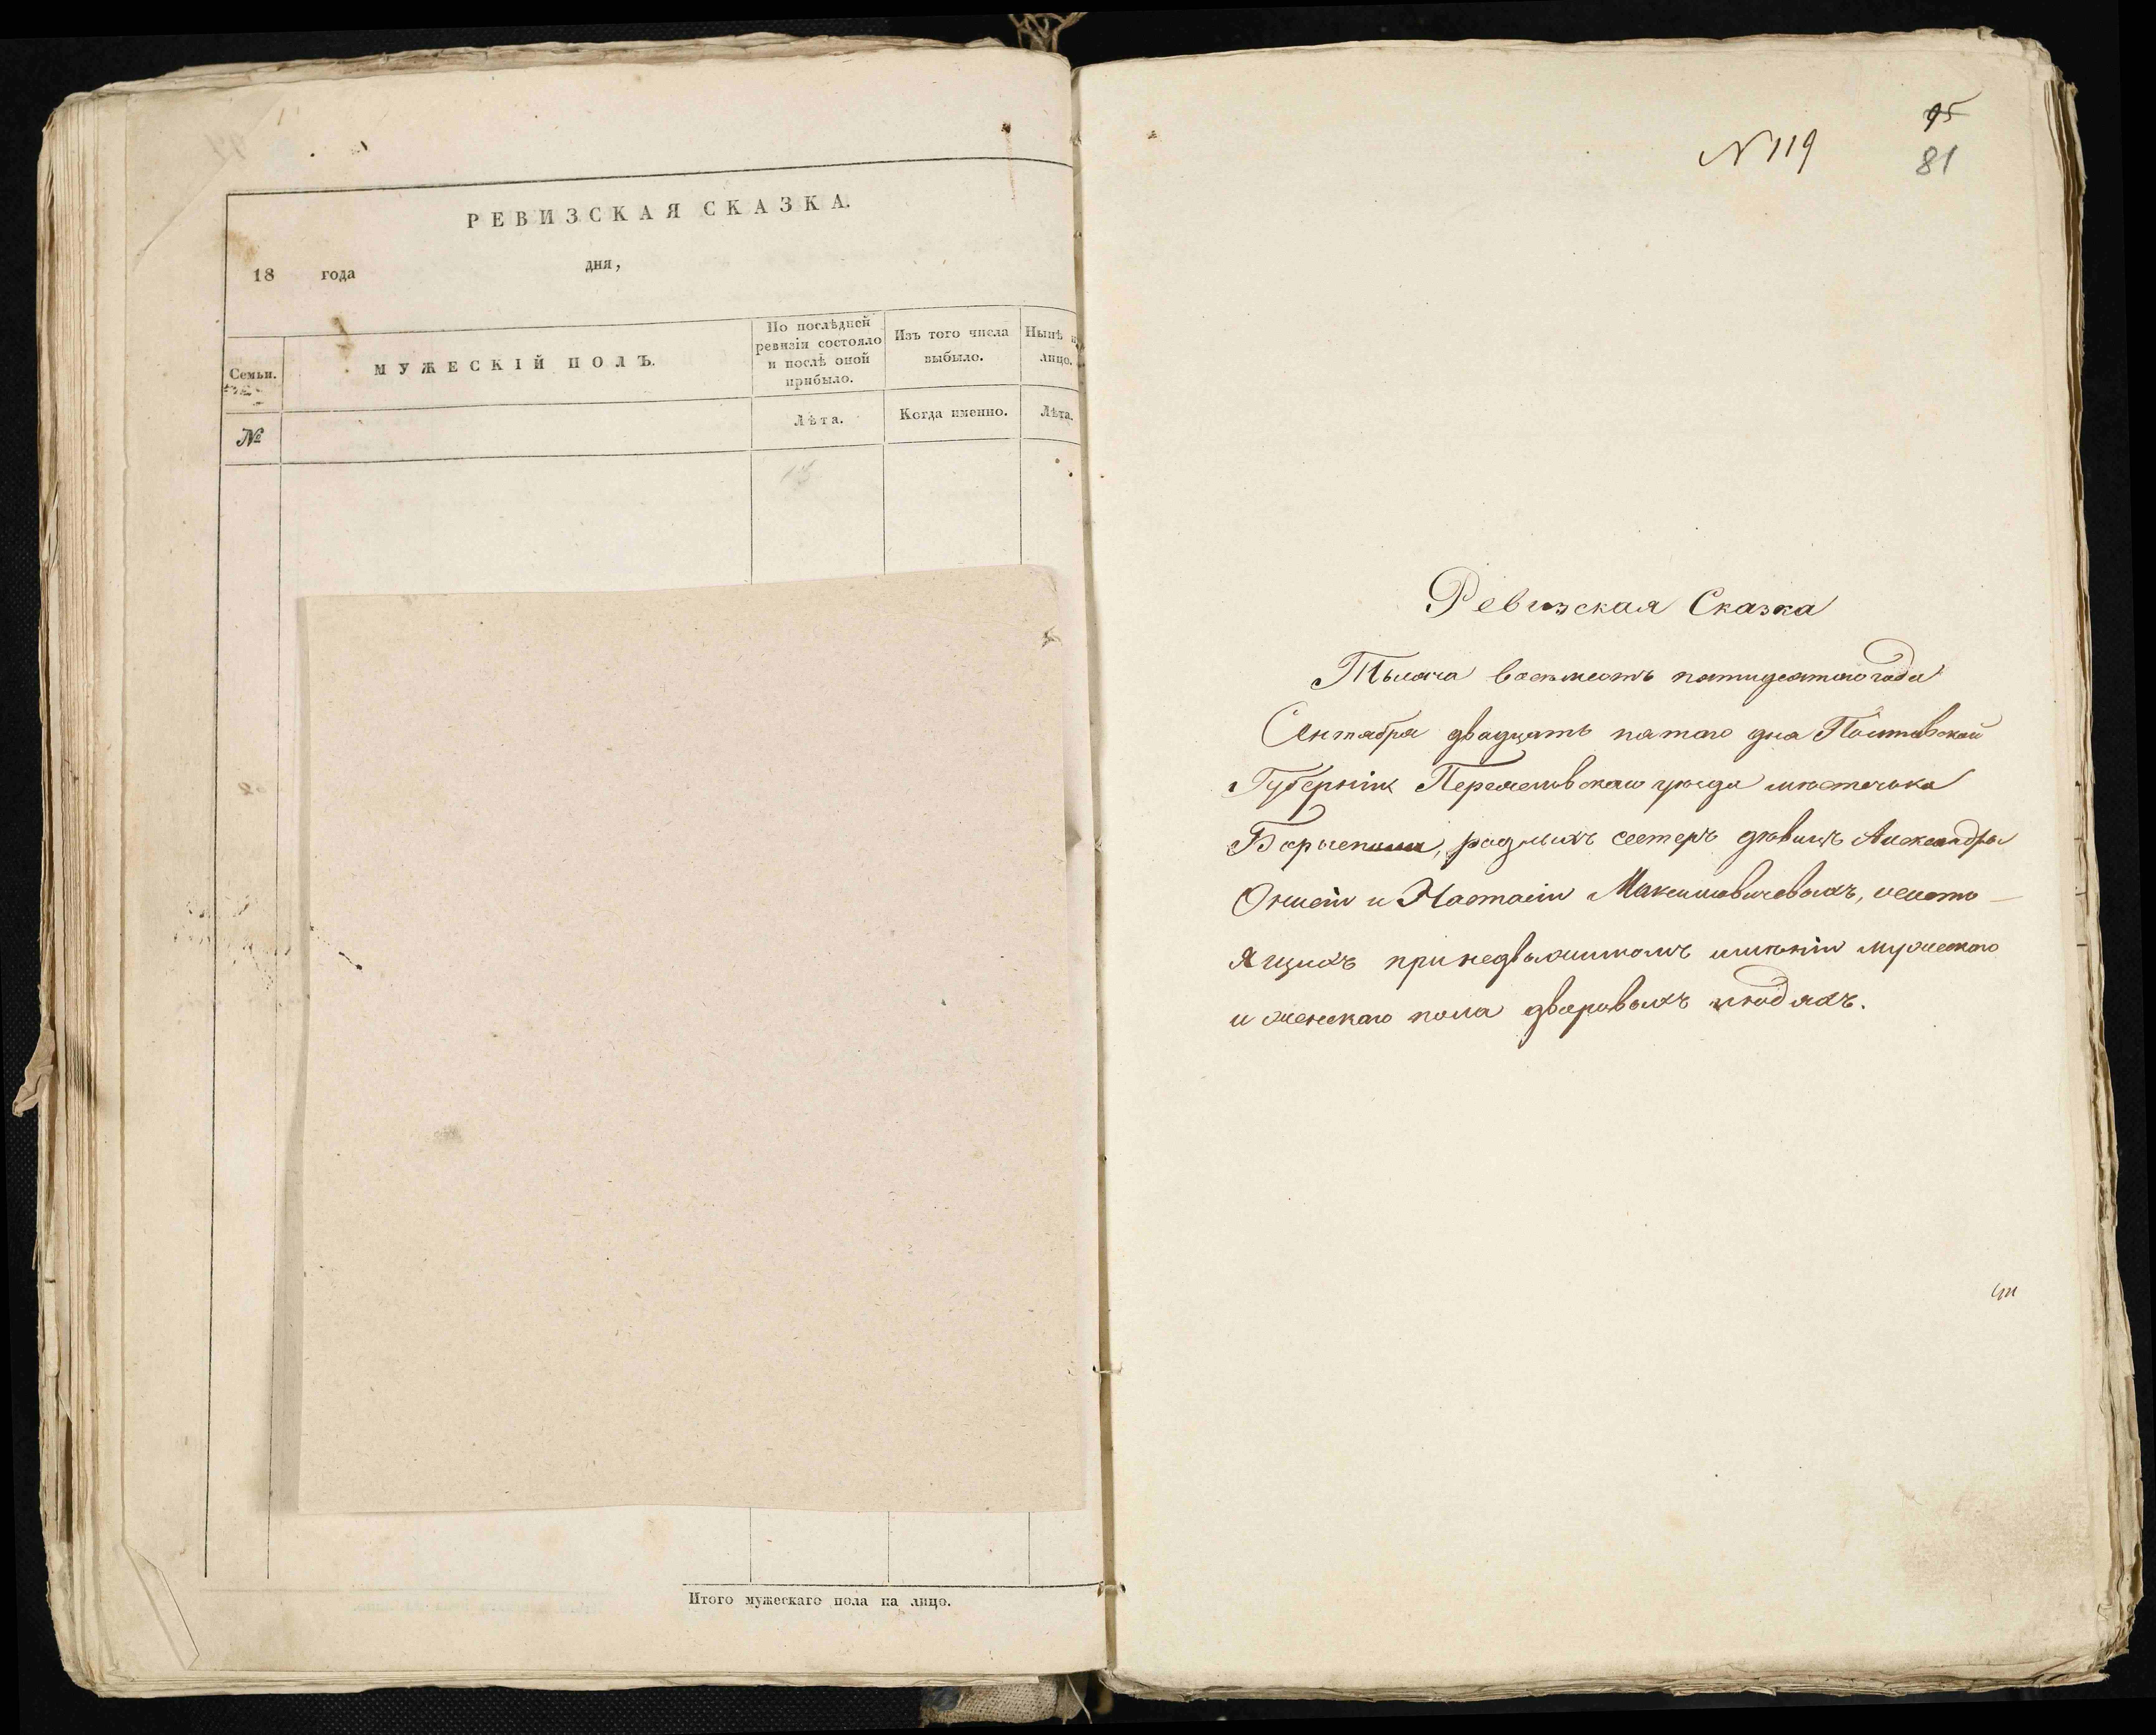 РЕВИЗСКАЯ СКАЗКА.
18 года дня,
Семьи.
МУЖЕСКІЙ ПОЛЪ.
По послѣдней
ревизіи состояло
и послѣ оной
прибыло.
Изъ того числа
выбыло.
Нынѣ н
лицо.
№
Лѣта.
Когда именно.
Лѣта.
Итого мужескаго пола на лицо.
95
N 119
81
Ревизская Сказка
Тысяча восемьсотъ пятидесятаго года
Сентября двадцать пятаго дня Полтавской
Губерніи Переяславскаго уѣзда мѣстечка
Борисполя, родныхъ сестеръ дѣвицъ Александры
и Настасіи Максимовичевыхъ, несосто-
ящихъ при недвижимомъ имѣніи мужескаго
и женскаго пола дворовыхъ людяхъ.